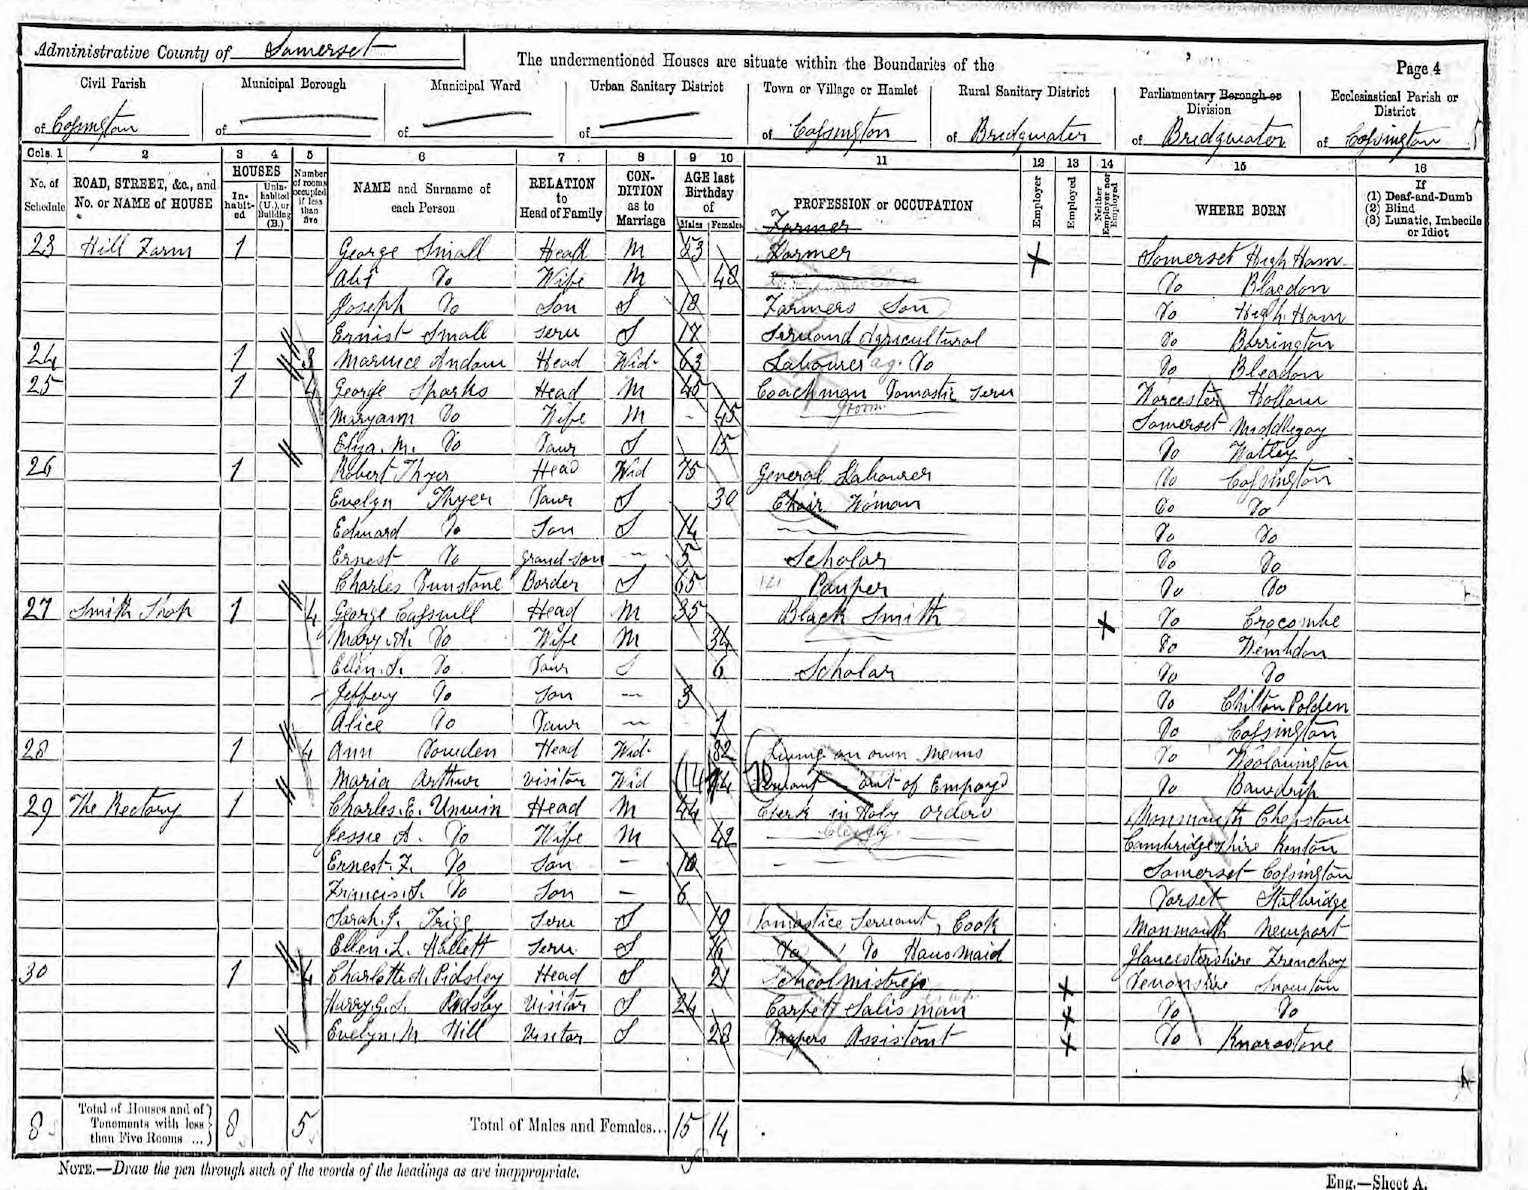 Administrative County of Somerset
The undermentioned Houses are situate within the Boundaries of the
Page 4
Civil Parish
Municipal Borough
Municipal Ward
Urban Sanitary District
Town or Village or Hamlet
Rural Sanitary District
Parliamentary Borough or Division
Ecclesiastical Parish or District
of Cossington
of
of
of
of Cossington
of Bridgwater
of Bridgwater
of Cossington
Cols. 1 2 3 4 5 6 7 8 9 10 11 12 13 14 15 16
No. of Schedule
ROAD, STREET, &c., and No. or NAME of HOUSE
HOUSES
In-habit-ed
Unin-habited (U.), or Building (B.)
Number of rooms occupied if less than five
NAME and Surname of each Person
RELATION to Head of Family
CON-DITION as to Marriage
AGE last Birthday of
Males Females
PROFESSION or OCCUPATION
Employer
Employed
Neither Employer nor Employed
WHERE BORN
If
(1) Deaf-and-Dumb
(2) Blind
(3) Lunatic, Imbecile or Idiot
Farmer
23 Hill Farm 1 George Small Head M 53 Farmer X Somerset High Ham
Do Wife M 48 Do Blagdon
Joseph Do Son S 18 Farmers Son Do High Ham
Ernist Small Serv S 17 Servand Agricultural Do
24 1 3 Head Wid 63 Labourer ag. Do Do Bleadon
25 1 4 George Sparks Head M 45 Coachman Domastic Serv Worcester
Groom
Maryann Do Wife M - 45 Somerset
Eliza. M. Do Daur S 15 Do
26 1 Robert Thyer Head Wid 75 General Labourer Do Cossington
Evelyn Thyer Daur S 30 Chair Woman Do Do
Edward Do Son S 14 Do Do
Ernest Do Grand-son - 5 Scholar Do Do
Charles Dunstone Border S 65 Pauper Do Do
27 Smith Shop 1 4 George Head M 35 Black Smith X Do Crocombe
Mary A. Do Wife M 34 Do Wembdon
Ellen. S. Do Daur S 6 Scholar Do Do
Jeffery Do Son - 3 Do Chilton Polden
Alice Do Daur - 1 Do Cossington
28 1 4 Ann Dowden Head Wid 82 Living on own means Do Woolavington
Maria Arthur Visitor Wid Servant out of Employ'd Do Bawdrip
29 The Rectory 1 Charles. E. Unwin Head M 44 Clerk in Holy Orders Monmouth Chepstow
Clergy.
Jessie A. Do Wife M 42 Cambridgeshire
Ernest. F. Do Son - 10 Somerset Cossington
Francis. S. Do Son - 6 Dorset Stalbridge
Sarah. J. Trigg Serv S 19 Domastice Servant, Cook Monmouth Newport
Ellen. L. Hallett Serv S 16 Do Do Hous Maid Gloucestershire Frenchay
30 1 4 Charlotte A. Pidsley Head S 21 Schoolmistress X Devonshire
Harry G. S. Pidsley Visitor S 24 Carpett Salisman X Do Do
Evelyn. M. Hill Visitor S 28 Drapers Assistant X Do Knarostone
8 Total of Houses and of Tenements with less than Five Rooms ... 8 5 Total of Males and Females... 15 14
NOTE.—Draw the pen through such of the words of the headings as are inappropriate.
Eng.—Sheet A.